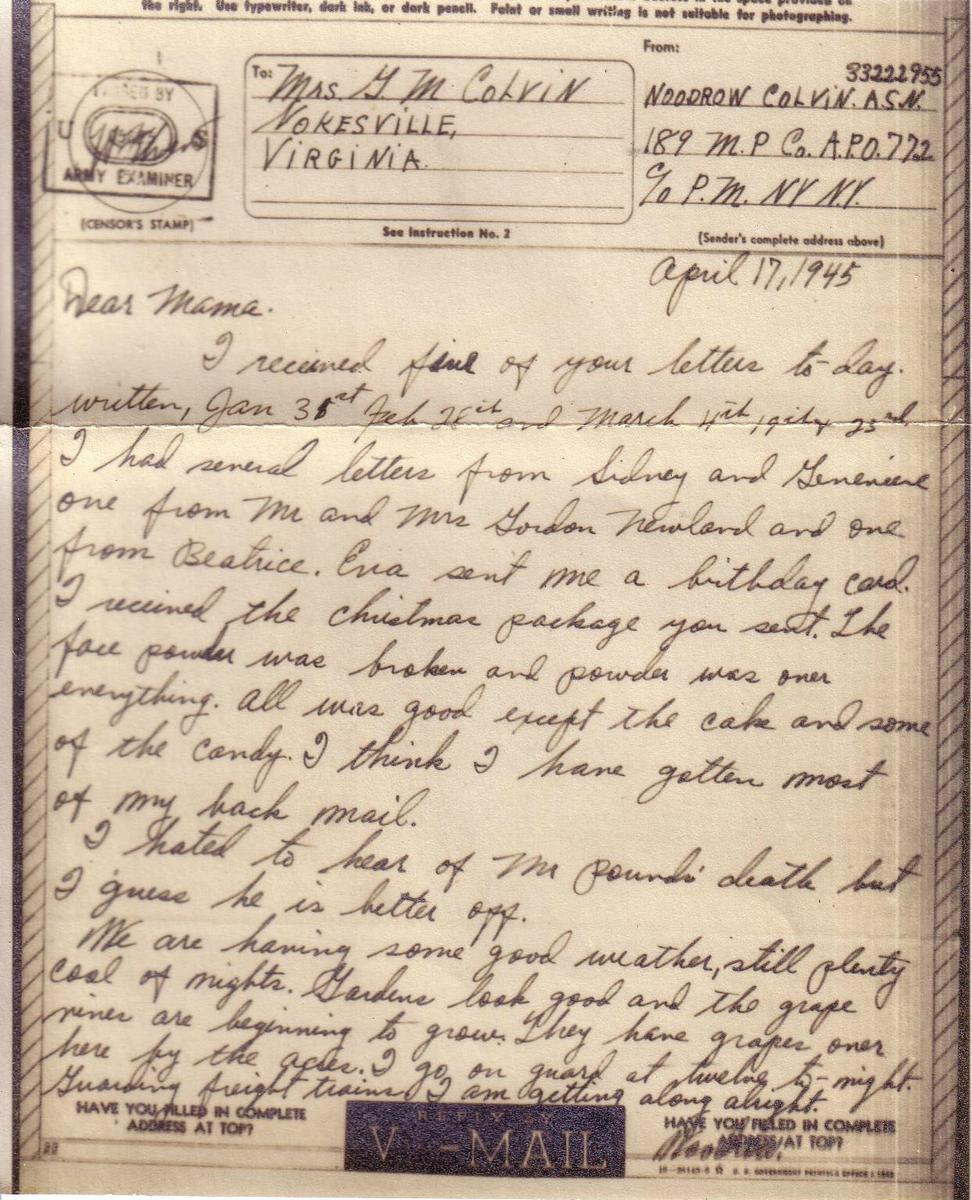 the right. Use typewriter, dark ink, or dark pencil. Faint or small writing is not suitable for photographing.
BY
U S
ARMY EXAMINER
(CENSOR'S STAMP)
To: Mrs. G. M Colvin
Nokesville,
Virginia.
See Instruction No. 2
From:
33222955
Woodrow Colvin. A.S.N.
189 M.P Co. A.P.O. 772
c/o P.M. NY NY.
(Sender's complete address above)
April 17, 1945
Dear Mama.
I received five of your letters to-day.
written, Jan 31st Feb 28th and March 4th, 19th & 23rd,
I had several letters from Sidney and Genevieve
one from Mr and Mrs Gordon Newland and one
from Beatrice. Eva sent me a birthday card.
I received the christmas package you sent. The
face powder was broken and powder was over
everything. all was good except the cake and some
of the candy. I think I have gotten most
of my back mail.
I hated to hear of Mr Pounds' death but
I guess he is better off.
We are having some good weather, still plenty
cool of nights. Gardens look good and the grape
vines are beginning to grow. They have grapes over
here by the acres. I go on guard at twelve to-night.
Guarding freight trains. I am getting along alright.
Woodrow.
HAVE YOU FILLED IN COMPLETE
ADDRESS AT TOP?
REPLY BY
V...-MAIL
HAVE YOU FILLED IN COMPLETE
ADDRESS AT TOP?